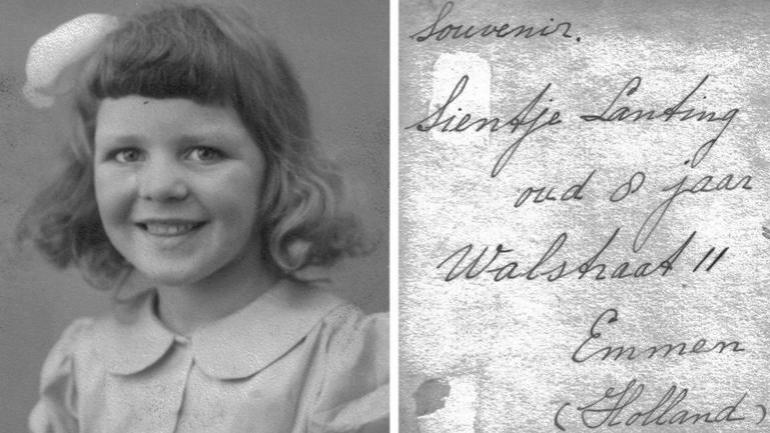 Souvenir.
Sientje Lanting
oud 8 jaar
Walstraat 11
Emmen
(Holland)